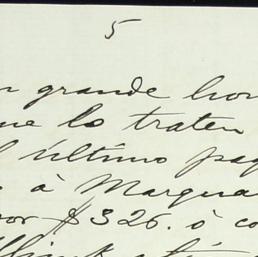 5
n grande hon
ue lo traten
l último pag
à Marqua
por $326. ó co